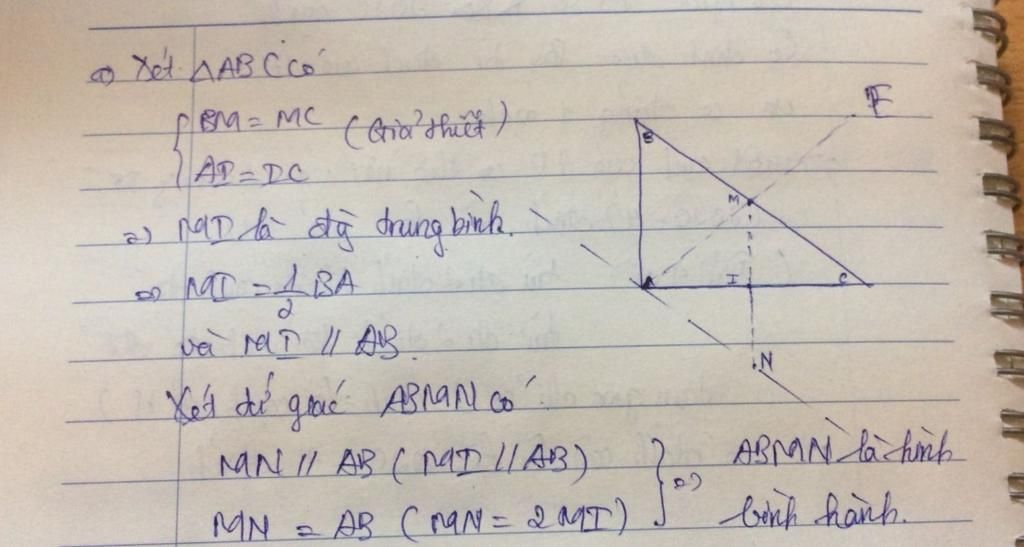 a) Xét ΔABC có
{ BM = MC (Giả thiết)
AI = IC
=> MI là đg trung bình.
=> MI = 1/2 BA
và MI // AB.
Xét tứ giác ABMN có
MN // AB (MI // AB)
MN = AB (MN = 2MI) } => ABMN là hình
bình hành.
E
B
M
A
I
C
N